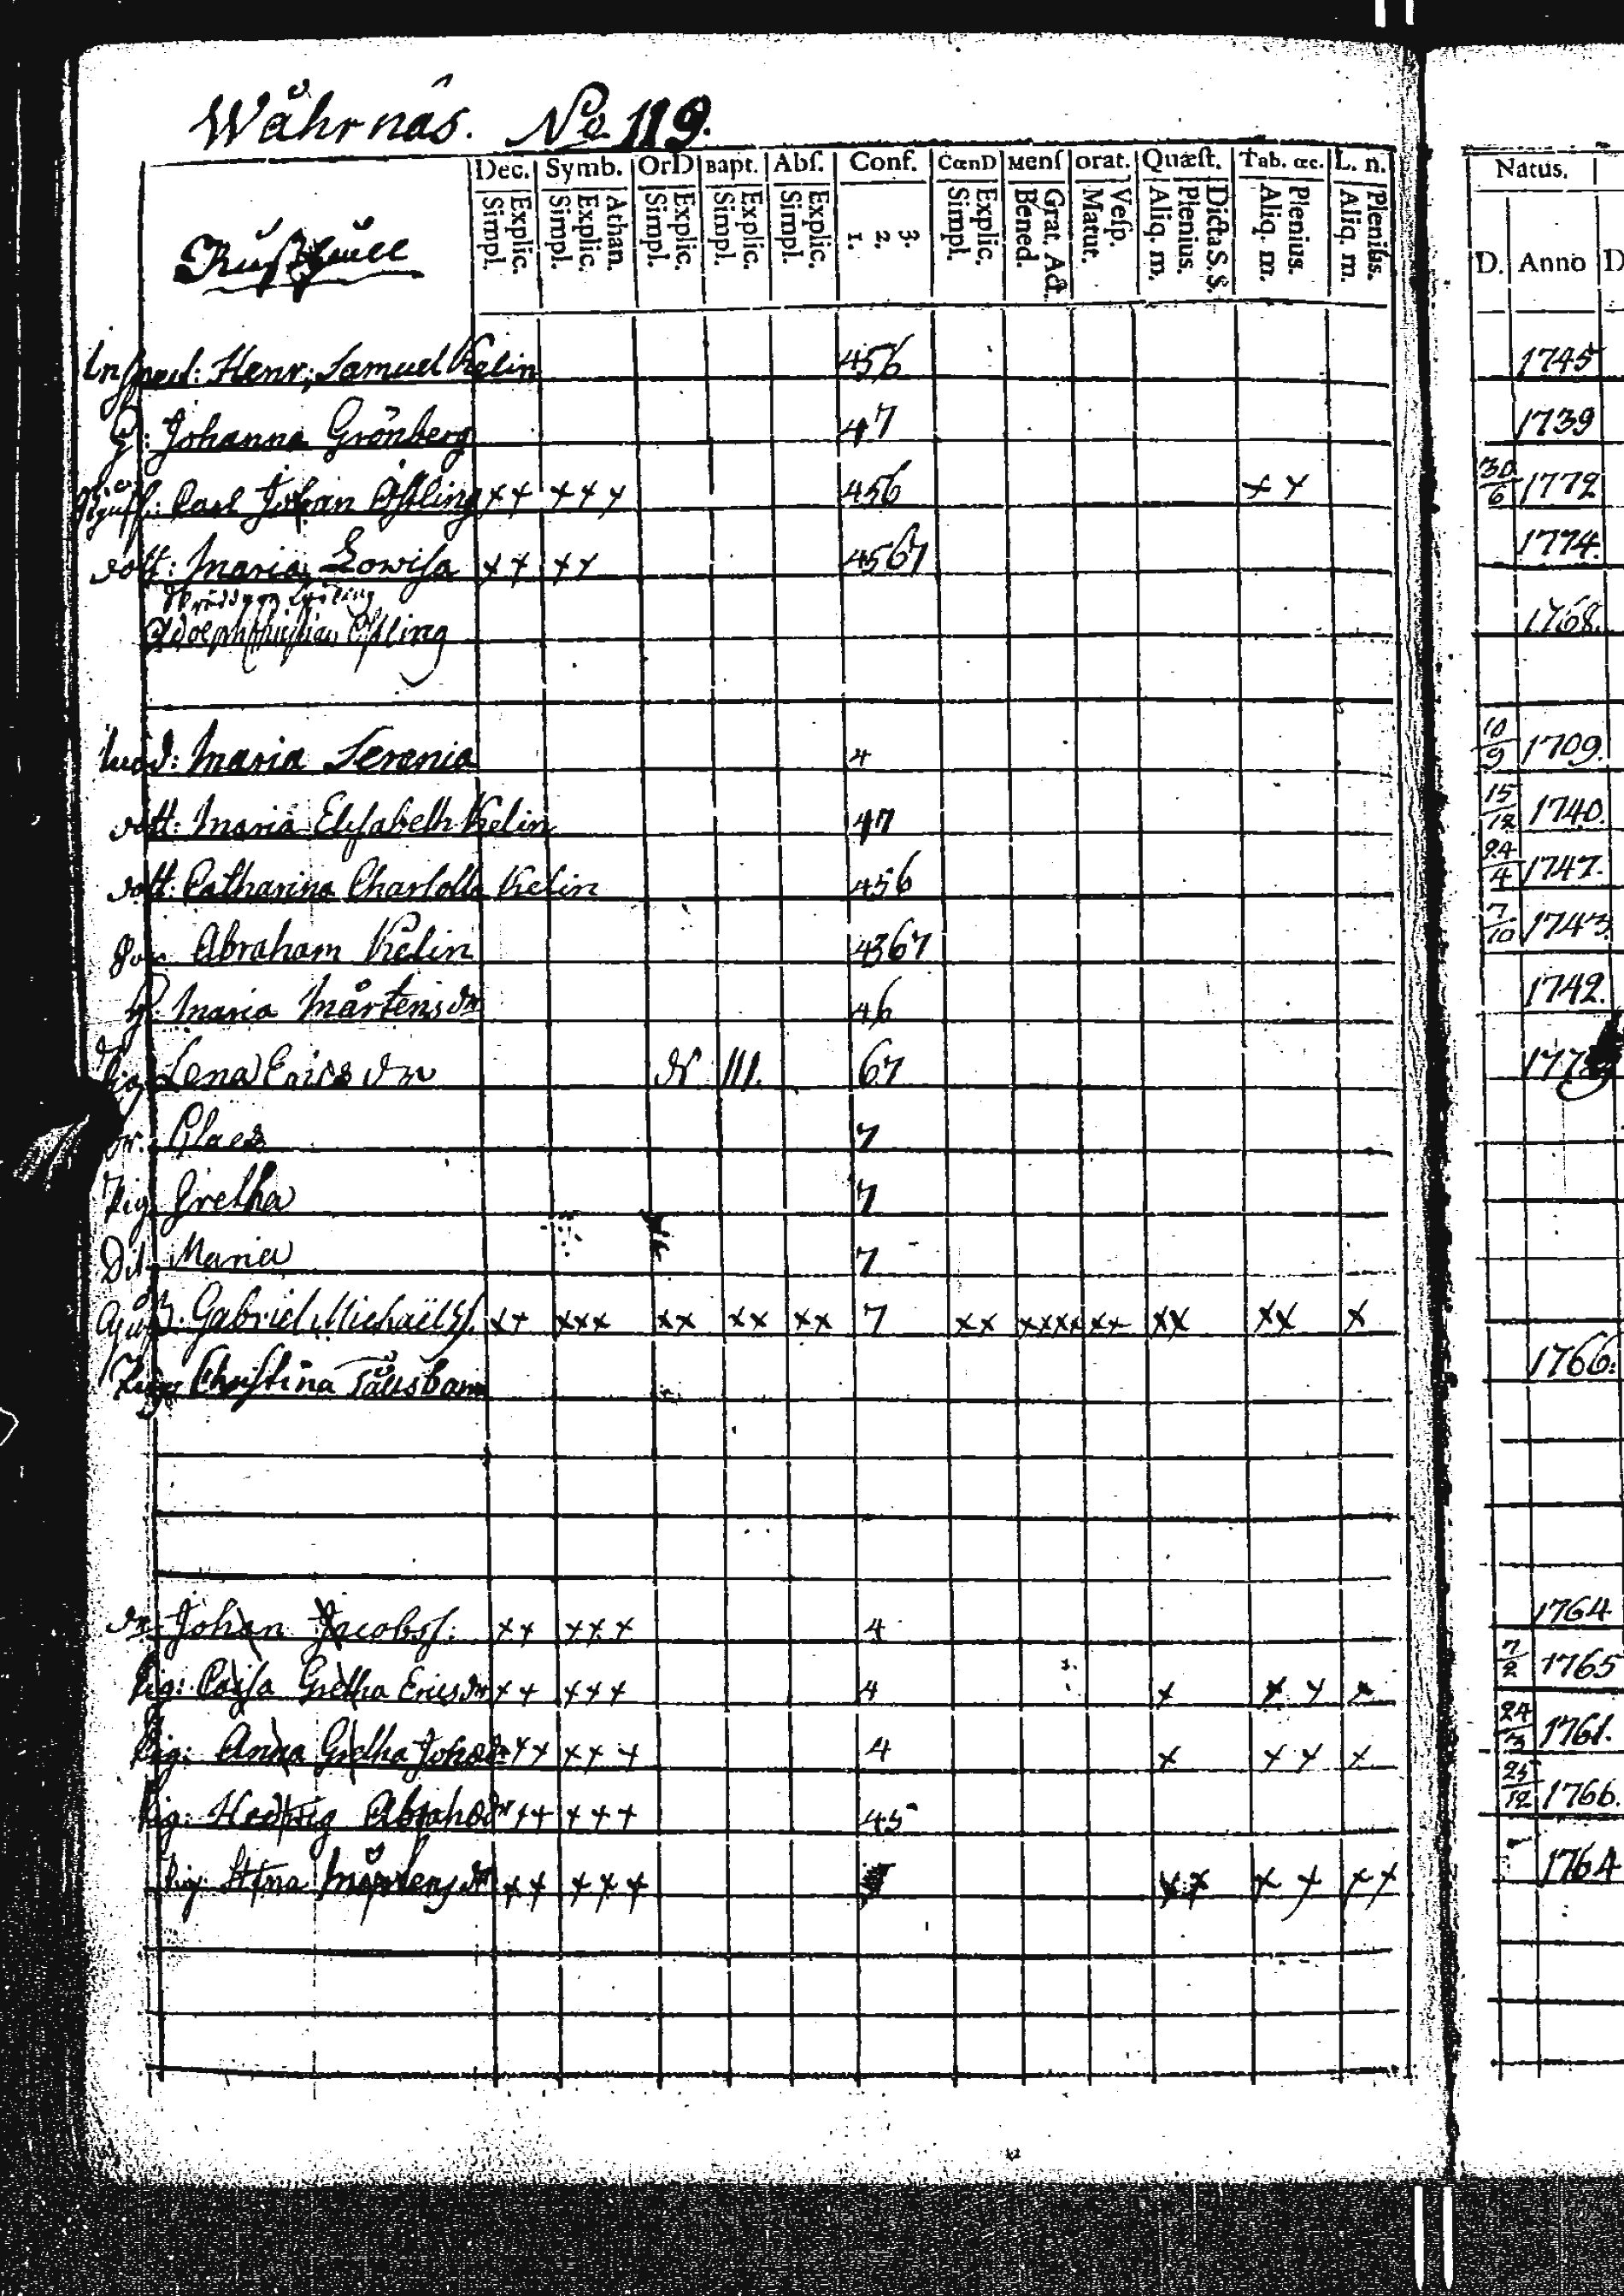 Wåhrnäs. No 119.
Dec. Symb. OrD Bapt. Abſ. Conf. CœnD Menſ orat. Quæſt. Tab. œc. L. n. Natus.
Simpl. Explic. Simpl. Explic. Athan. Simpl. Explic. Simpl. Explic. Simpl. Explic. 1. 2. 3. Simpl. Explic. Bened. Grat. Act. Matut. Veſp. Aliq. m. Plenius. Dicta S.S. Aliq. m. Plenius. Aliq. m. Plenius. D. Anno D
Henr; Samuel Kelin 456 1745
Johanna Grönberg 47 1739
Carl Johan Östling ×× ××× 456 ×× 30/6 1772
dott: Maria Lowisa ×× ×× 4567 1774.
Adolph Christian Östling 1768.
Maria Serenia 4 10/9 1709.
dott: Maria Elisabeth Kelin 47 15/12 1740.
dott: Catharina Charlotta Kelin 456 24/4 1747.
Abraham Kelin 4367 7/10 1743.
Maria Mårtensdr 46 1742.
Lena Ericsdr N 111. 67
Claes 7
Pig. Gretha 7
Dit. Maria 7
Gabriel Michaëlss. ×× ××× ×× ×× ×× 7 ×× ×××× ×× ×× ×× ×
Christina 1766.
dr. Johan Jacobss: ×× ××× 4 1764
Pig: Cajsa Gretha Ericsdr ×× ××× 4 × ×× × 7/2 1765
Pig: Anna Gretha Johsdr ×× ××× 4 × ×× × 24/3 1761.
Pig: Hedwig Abrahsdr ×× ××× 45 25/12 1766.
Pig. Stina Mårtensdr ×× ××× ×× ×× ×× 1764